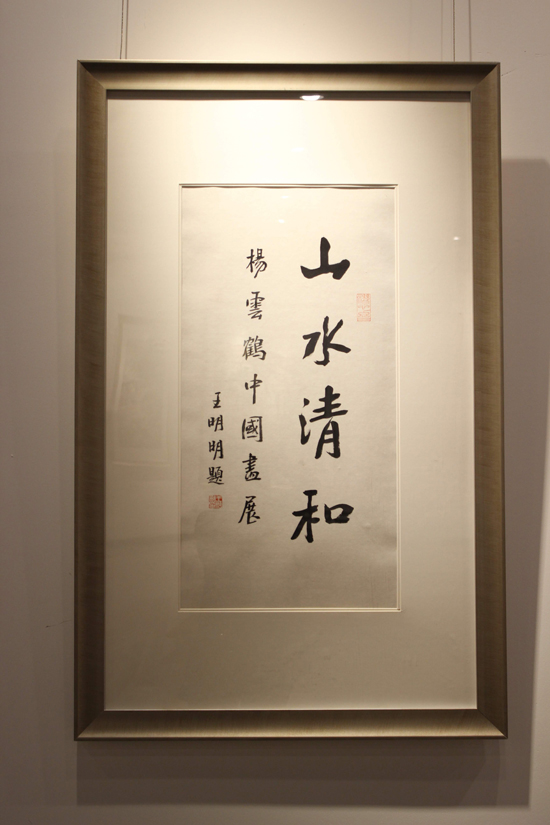 山水清和
楊雲鶴中國畫展
王明明題